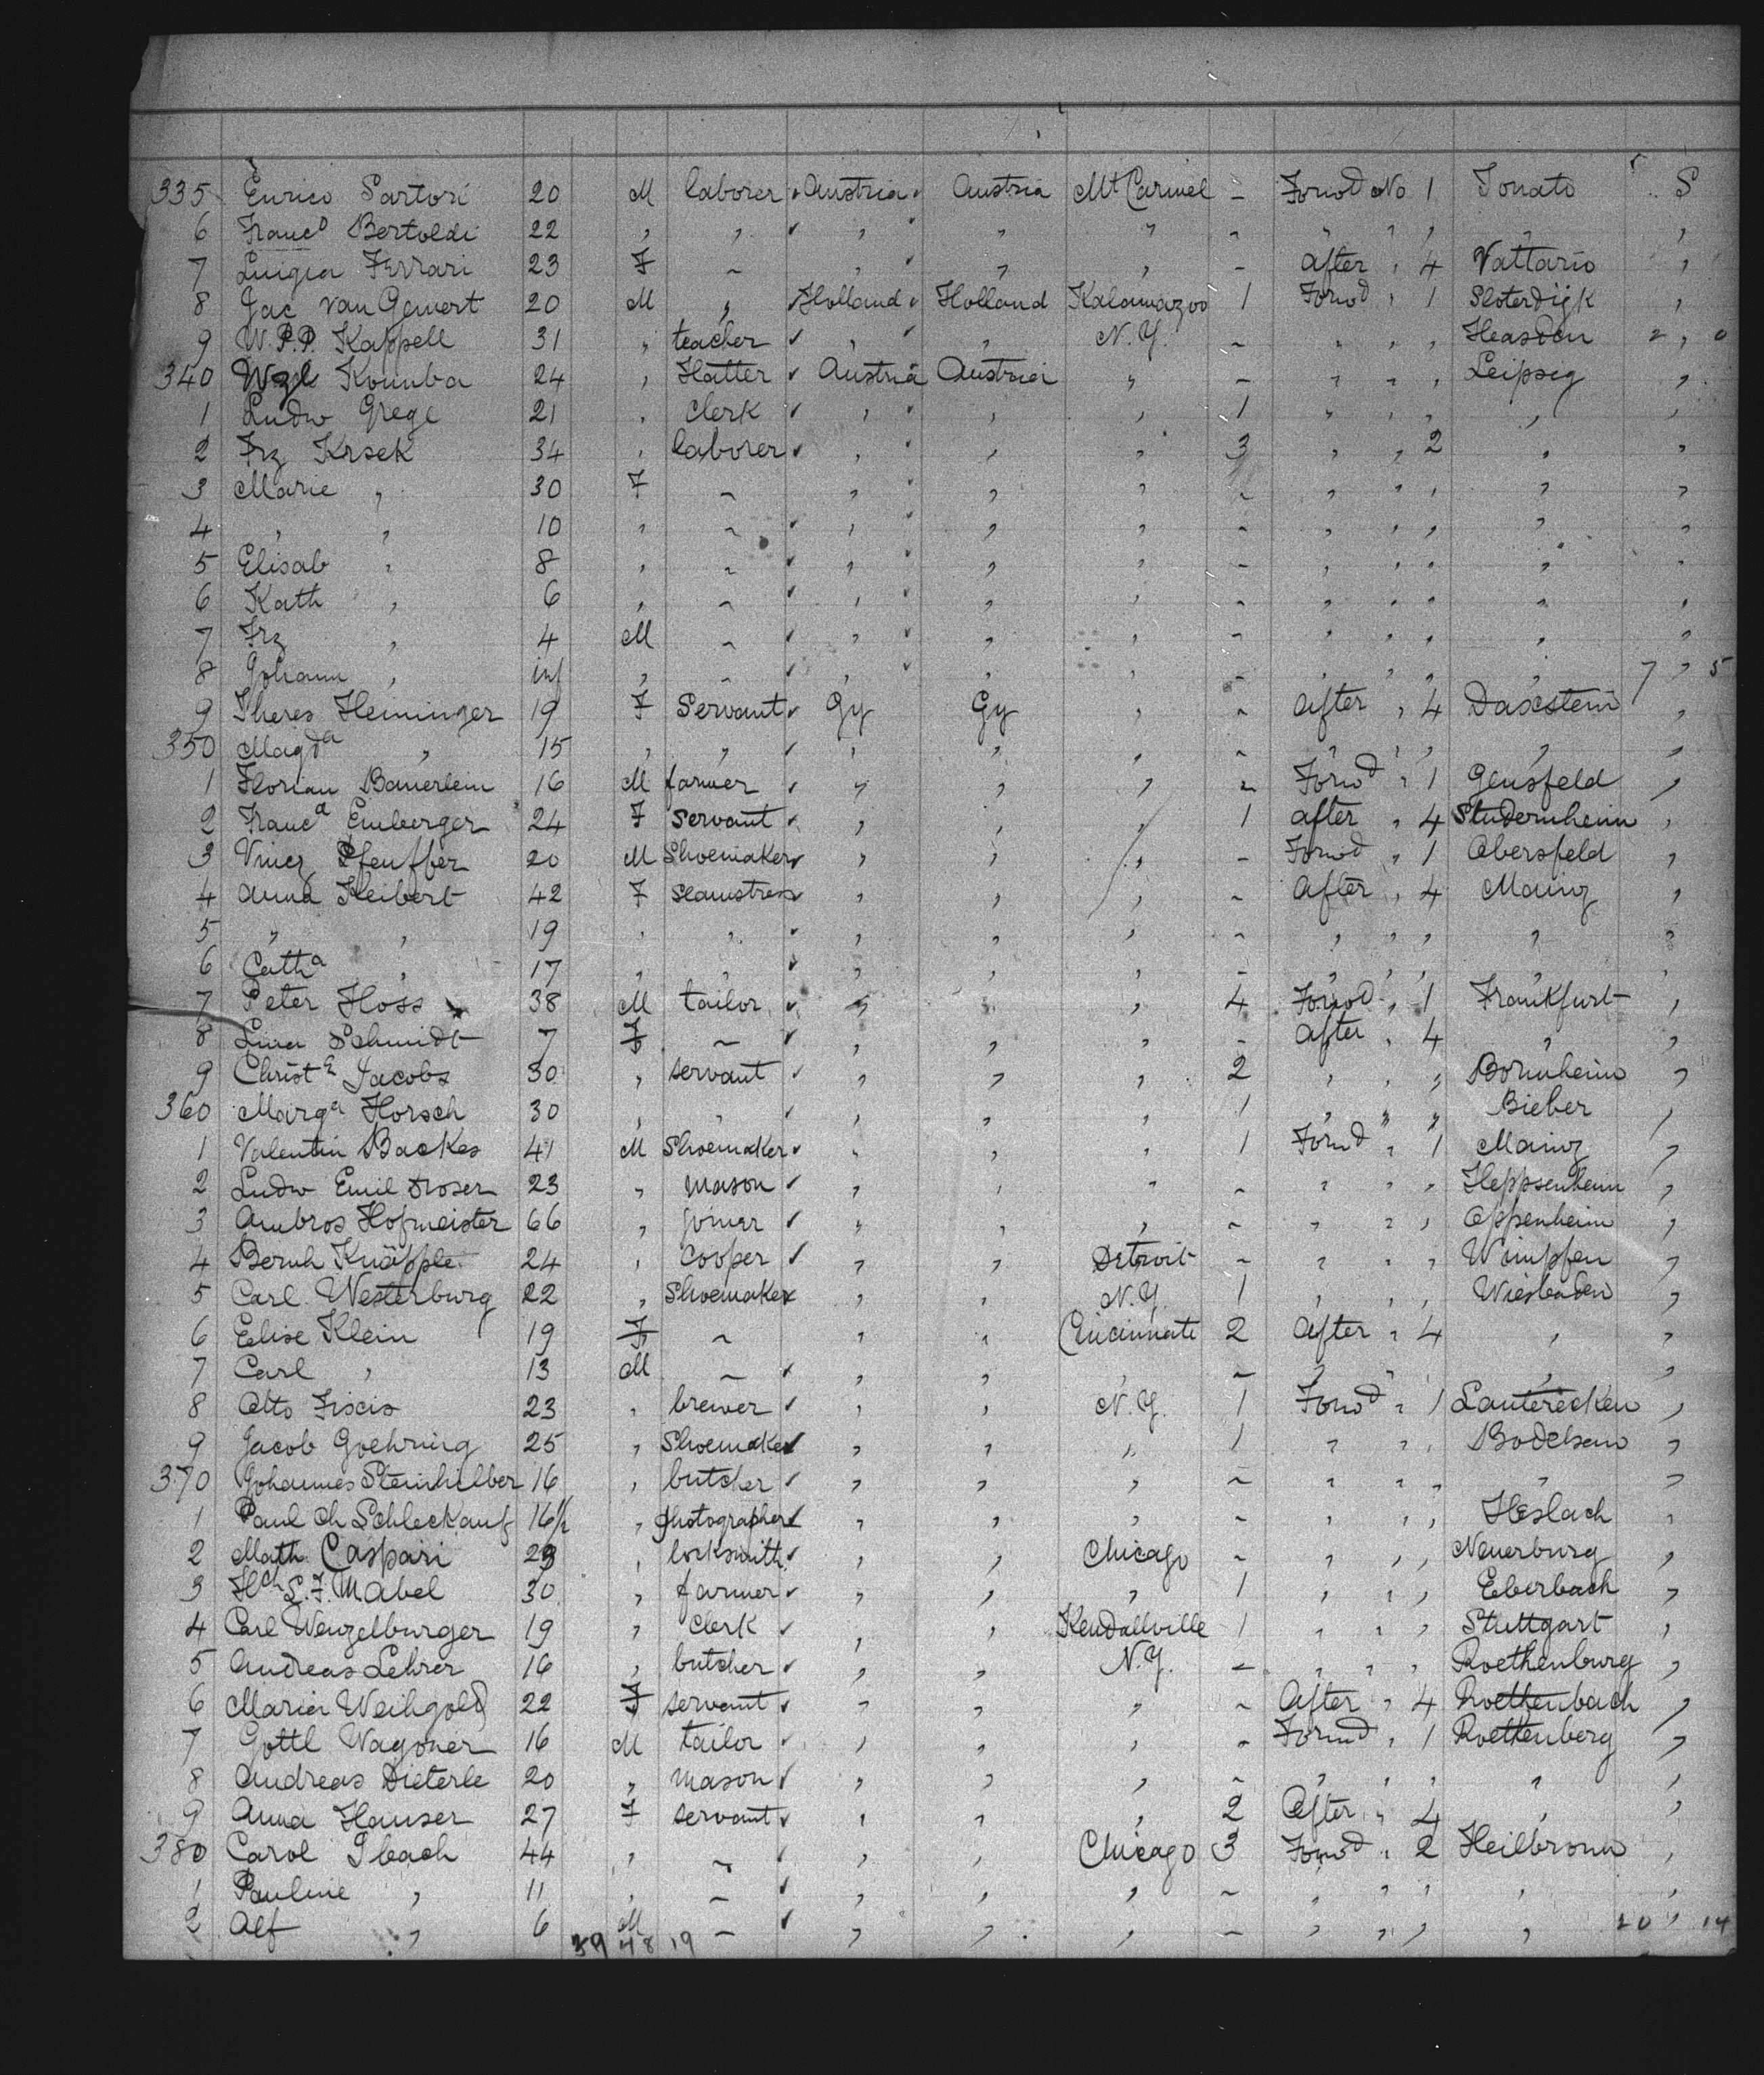 335 Enrico Sartori 20 M laborer Austria Austria Mt Carmel - Forwd No 1 Tonato S
6 Francº Bertoldi 22 " " " " " - " " " " "
7 Luigia Ferrari 23 F - " " " - After " 4 Vattario "
8 Jac van Gemert 20 M " Holland Holland Kalamazoo 1 Forwd " 1 Sloterdijk "
9 W.P.P. Kappell 31 " teacher " " N.Y. - " " " Heasden 2 " 0
340 Wzl Koumba 24 " Hatter Austria Austria " - " " " Leipzig "
1 Ludw Grege 21 " Clerk " " " 1 " " " " "
2 Frz Krsek 34 " laborer " " " 3 " " 2 " "
3 Marie " 30 F - " " " - " " " " "
4 " " 10 " - " " " - " " " " "
5 Elisab " 8 " - " " " - " " " " "
6 Kath " 6 " - " " " - " " " " "
7 Frz " 4 M - " " " - " " " " "
8 Johann " inf " - " " " - " " " " 7 " 5
9 Theres Heminger 19 F Servant Gy Gy " - After " 4 Daxstein "
350 Magda " 15 " " " " " - " " " " "
1 Florian Bauerlein 16 M farmer " " " - Forwd " 1 Gensfeld "
2 Franca Emberger 24 F Servant " " " 1 after " 4 Studernheim "
3 Vincz Pfeuffer 20 M Shoemaker " " " - Forwd " 1 Obersfeld "
4 Anna Keibert 42 F Seamstress " " " - After " 4 Mainz "
5 " " 19 " " " " " - " " " " "
6 Catha " 17 " " " " " - " " " " "
7 Peter Hoss 38 M tailor " " " 4 Forwd " 1 Frankfurt "
8 Lina Schmidt 7 F - " " " - After " 4 " "
9 Christe Jacobs 30 " servant " " " 2 " " " Bornheim "
360 Marga Horsch 30 " " " " " 1 " " " Bieber "
1 Valentin Backes 41 M Shoemaker " " " 1 Forwd " 1 Mainz "
2 Ludw Emil Droser 23 " Mason " " " - " " " Heppsenheim "
3 Ambros Hofmeister 66 " joiner " " " - " " " Oppenheim "
4 Bernh Knäpple 24 " Cooper " " Detroit - " " " Wimpfen "
5 Carl Westerburg 22 " Shoemaker " " N.Y. 1 " " " Wiesbaden "
6 Elise Klein 19 F - " " Cincinnati 2 After " 4 " "
7 Carl " 13 M - " " " - " " " "
8 Otto Fiscis 23 " brewer " " N.Y. 1 Forwd " 1 Lauterecken "
9 Jacob Goehring 25 " Shoemaker " " " 1 " " " Bodelsem "
370 Johannes Steinhilber 16 " butcher " " " - " " " " "
1 Paul Ch Schleckauf 16½ " photographer " " " - " " " Heslach "
2 Math Caspari 29 " locksmith " " Chicago - " " " Neuerburg "
3 Hch L.F. Mabel 30 " farmer " " " 1 " " " Eberbach "
4 Carl Wenzelburger 19 " Clerk " " Kendallville 1 " " " Stuttgart "
5 Andreas Lehrer 16 " butcher " " N.Y. - " " " Roethenburg "
6 Maria Weihgold 22 F servant " " " - After " 4 Roethenbach "
7 Gottl Wagoner 16 M tailor " " " - Forwd " 1 Roettenberg "
8 Andreas Dieterle 20 " Mason " " " - " " " " "
9 Anna Hauser 27 F servant " " " 2 After " 4 " "
380 Carol Ibach 44 " - " " Chicago 3 Forwd " 2 Heilbronn "
1 Pauline " 11 " - " " " - " " " " "
2 Alf " 6 M - " " " - " " " " 20 " 14
39 48 19